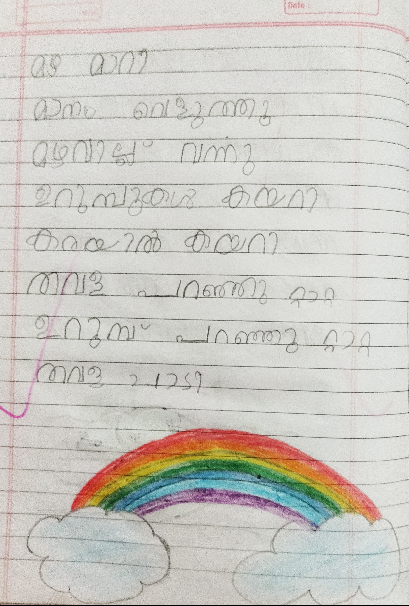 Date :
മഴ മാറി
മാനം വെളുത്തു
മഴവില്ല് വന്നു
ഉറുമ്പുകൾ കയറി
കരയിൽ കയറി
തവള പറഞ്ഞു റ്റാറ്റ
ഉറുമ്പ് പറഞ്ഞു റ്റാറ്റ
തവള ചാടി